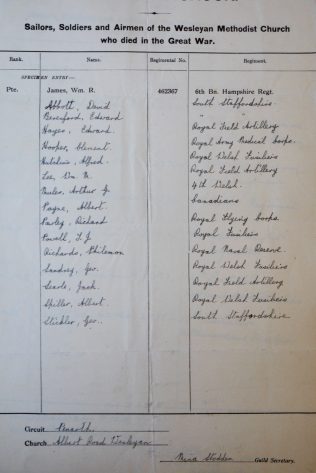 Sailors, Soldiers and Airmen of the Wesleyan Methodist Church
who died in the Great War.
Rank. Name. Regimental No. Regiment.
SPECIMEN ENTRY—
Pte. James, Wm. R. 462367 6th Bn. Hampshire Regt.
Abbott, David South Staffordshire
Beresford, Edward " "
Hayes, Edward. Royal Field Artillery
Hooper, Clement. Royal Army Medical Corps.
Hutchins, Alfred. Royal Welsh Fusiliers
Lee, Wm. N. Royal Field Artillery
Arthur J. 4th Welsh.
Payne, Albert. Canadians
Richard Royal Flying Corps.
Powell, T. J. Royal Fusiliers
Richards, Philemon Royal Naval Reserve.
Geo. Royal Welsh Fusiliers
Searle, Jack. Royal Field Artillery
Spiller, Albert. Royal Welsh Fusiliers
Stickler, Geo. South Staffordshire
Circuit Penarth
Church Albert Road Wesleyan
Guild Secretary.